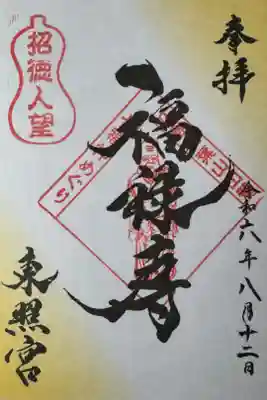 奉拝
令和六年八月十二日
福禄寿
招徳人望
東照宮
めぐり